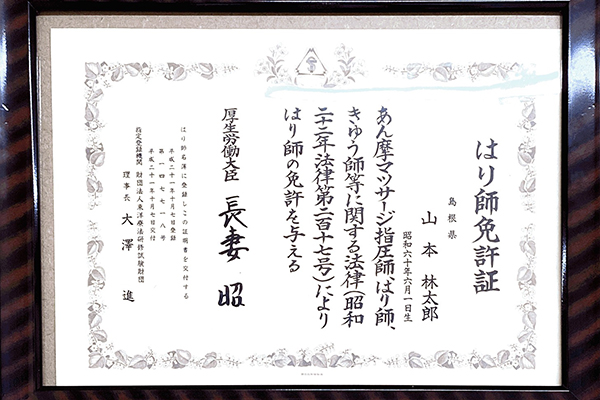 はり師免許証
島根県
山本 林太郎
昭和六十年六月一日生
あん摩マツサージ指圧師、はり師、
きゆう師等に関する法律(昭和
二十二年法律第二百十七号)により
はり師の免許を与える
厚生労働大臣 長妻 昭
はり師名簿に登録しこの証明書を交付する
平成二十一年十月七日登録
第一四七七一八号
平成二十一年十月七日交付
指定登録機関 財団法人東洋療法研修試験財団
理事長 大澤 進